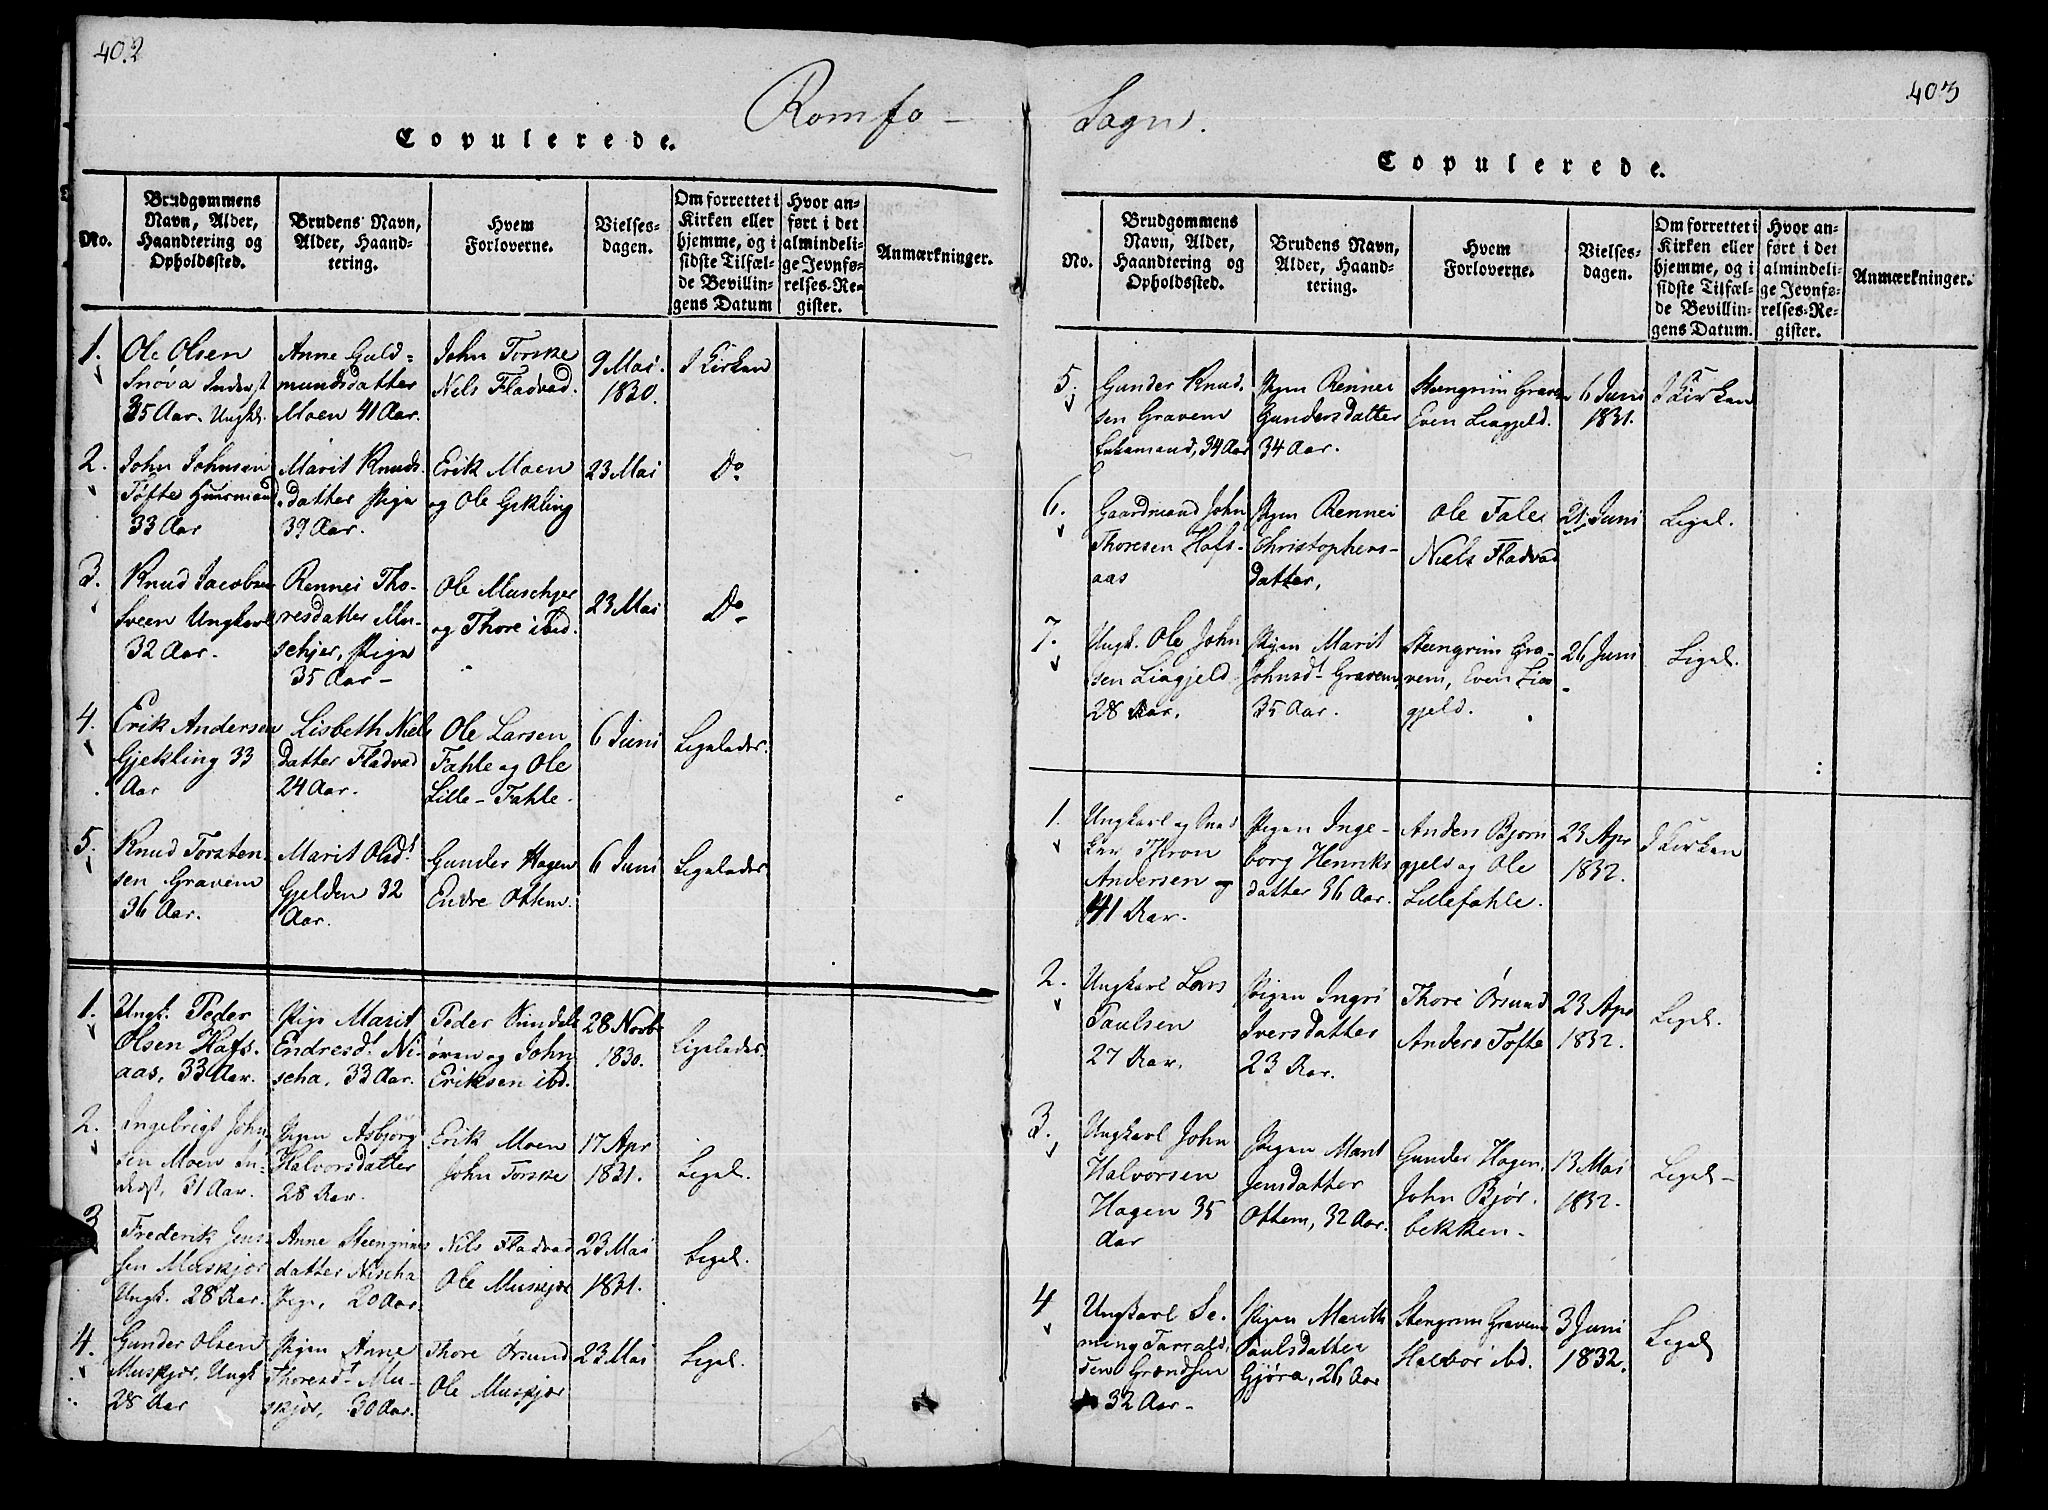 402
Romfo -
Copulerede.
No.
Brudgommens
Navn, Alder,
Haandtering og
Opholdssted.
Brudens Navn,
Alder, Haand-
tering.
Hvem
Forloverne.
Vielses-
dagen.
Om forrettet i
Kirken eller
hjemme, og i
sidste Tilfæl-
de Bevillin-
gens Datum
Hvor an-
ført i det
almindeli-
ge Jevnfø-
relses-Re-
gister.
Anmærkninger.
1.
Ole Olsen
Snöva Inderst
35 Aar. Ungk.
Anne Guld-
mundsdatter
Moen 41 Aar.
John Torske
Nels Fladvad.
9 Mai
1830.
I Kirken
2.
John Johnsen
Töfte Huusmand
33 Aar
Marit Knuds.
datter Pige
39 Aar.
Erik Moen
og Ole Gikling
23 Mai
Do
3.
Knud Jacobsen
Sveen Ungkarl
32 Aar.
Rennei Tho-
resdatter Mu-
schjer, Pige
35 Aar -
Ole Muschjer
og Thore ibid.
23 Mai
Do
4.
Erik Andersen
Gjekling 33
Aar
Lisbeth Niels
datter Fladvad
24 Aar.
Ole Larsen
Fahle og Ole
Lille-Fahle.
6 Juni
Ligelades.
5.
Knud Torsten
sen Gravem
36 Aar.
Marit Olsdt
Gjelden 32
Aar.
Gunder Hagen
Endre Ottem.
6 Juni
Ligelades
1.
Ungk. Peder
Olsen Hafs-
aas, 33 Aar.
Pige Marit
Endresdt Ni-
scha, 33 Aar.
Peder
ören og John
Eriksen ibd.
28 Novb.
1830.
Ligelades.
2.
Ingebrigt John
sen Moen In-
derst, 31 Aar.
Pigen Asbjörg
Halvorsdatter
28 Aar.
Erik Moen
John Torske
17 Apr
1831.
Ligel.
3
Frederik Jens-
sen Muskjør
Ungk. 28 Aar.
Anne Steengrims
datter Nischa
Pige, 20 Aar.
Nils Fladvad
Ole Muskjør
23 Mai
1831.
Ligel.
4.
Gunder Olsen
Muskjør, Ungk
28 Aar
Pigen Anne
Thoresdt Mu-
skjør, 30 Aar.
Thore Ørsund
Ole Muskjør
23 Mai
Ligel.
403
Sogn.
Copulerede.
No.
Brudgommens
Navn, Alder,
Haandtering og
Opholdssted.
Brudens Navn,
Alder, Haand-
tering.
Hvem
Forloverne.
Vielses-
dagen.
Om forrettet i
Kirken eller
hjemme, og i
sidste Tilfæl-
de Bevillin-
gens Datum.
Hvor an-
ført i det
almindeli-
ge Jevnfø-
relses-Re-
gister.
Anmærkninger.
5.
Gunder Knud.
sen Gravem
Enkemand, 34 Aar
Pigen Rennei
Gundersdatter
34 Aar.
Steengrim Gravem
Even Liagjeld.
6 Juni
1831.
I Kirken
6.
Gaardmand John
Thoresen Hafs-
aas
Pigen Rennei
Christophers-
datter,
Ole Fale
Niels Fladvad
21 Juni
Ligel.
7.
Ungk. Ole John
sen Liagjeld
28 Aar.
Pigen Marit
Johnsdt Gravem,
35 Aar.
Steengrim Gra-
vem, Even Lia
gjeld.
26 Juni
Ligel.
1.
Ungkarl og
Thron
Andersen
41 Aar.
Pigen Inge-
borg Henriks
datter 36 Aar.
Anders Bjorn
gjeld og Ole
Lillefahle.
23 Apr
1832.
I Kirken
2.
Ungkarl Lars
Paulsen
27 Aar.
Pigen Ingri
Iversdatter
23 Aar.
Thore Ørsund
Anders Tofte
23 Apr
1832.
Ligel.
3.
Ungkarl John
Halvorsen
Hagen 35
Aar
Pigen Marit
Jensdatter
Ottem, 32 Aar.
Gunder Hagen,
John Bjør-
bekken.
13 Mai
1832.
Ligel-
4
Ungkarl Se-
ming Tarrald-
sen Grændsen
32 Aar-
Pigen Marith
Paulsdatter
Gjøra, 26 Aar
Stengrim Gravem
Halvor ibd.
3 Juni
1832.
Ligel